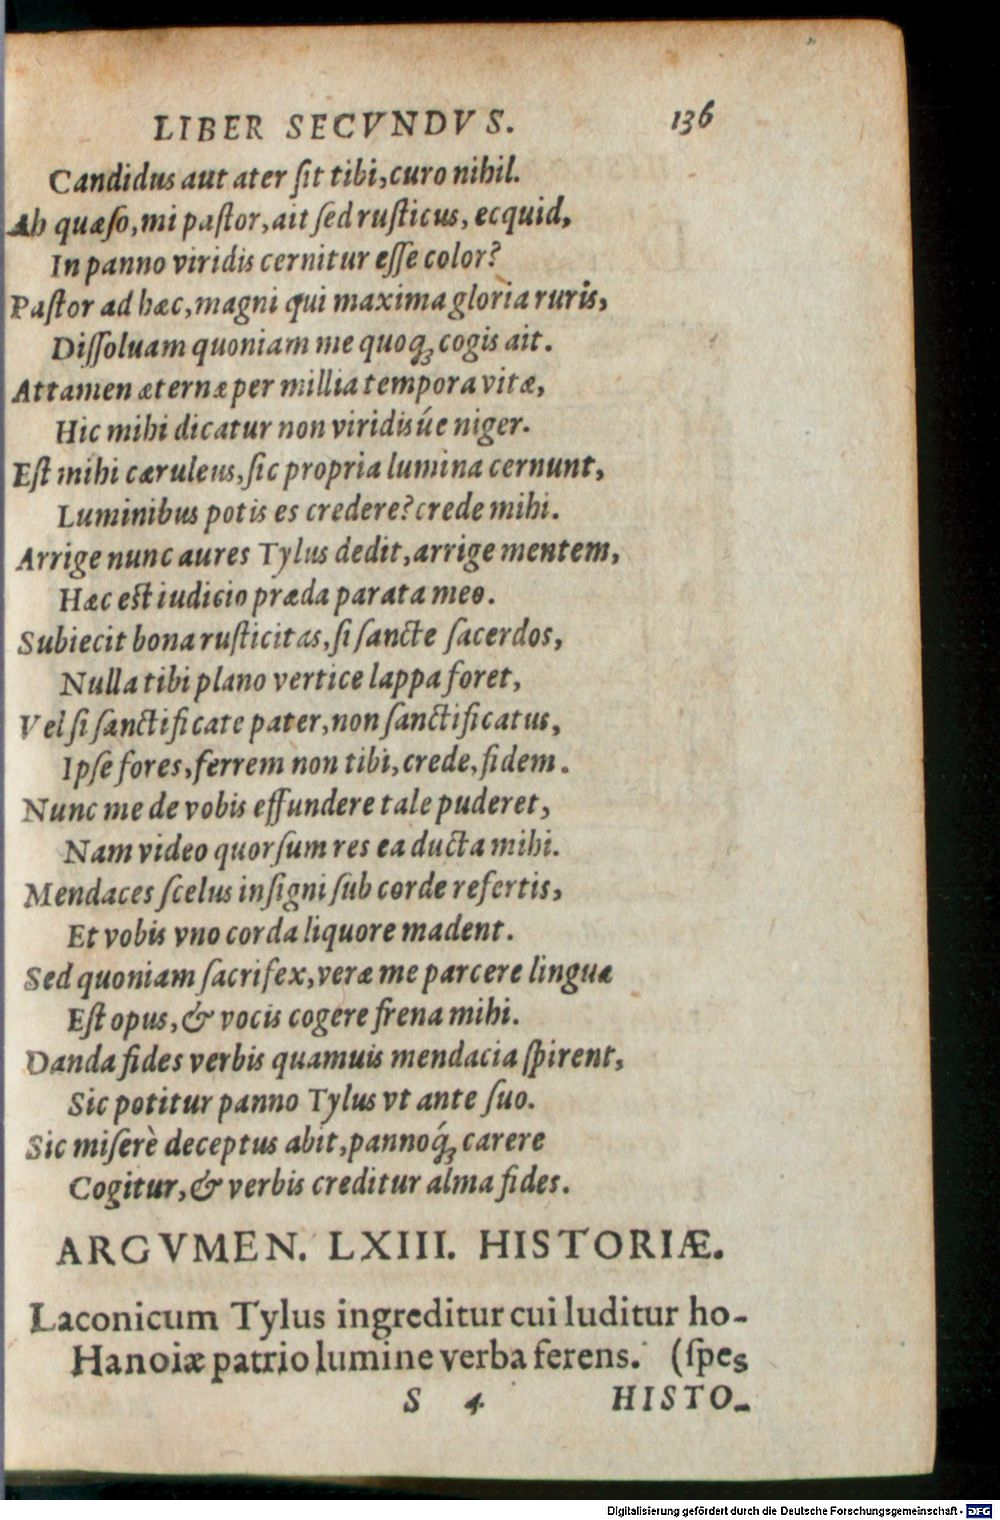 LIBER SECVNDVS. 136
Candidus aut ater ſit tibi, curo nihil.
Ah quæſo, mi paſtor, ait ſed ruſticus, ecquid,
In panno viridis cernitur eſſe color?
Paſtor ad hæc, magni qui maxima gloria ruris,
Diſſoluam quoniam me quoq́ꝫ cogis ait.
Attamen æternæ per millia tempora vitæ,
Hic mihi dicatur non viridisúe niger.
Eſt mihi cæruleus, ſic propria lumina cernunt,
Luminibus potis es credere? crede mihi.
Arrige nunc aures Tylus dedit, arrige mentem,
Hæc eſt iudicio præda parata meo.
Subiecit bona ruſticitas, ſi ſancte ſacerdos,
Nulla tibi plano vertice lappa foret,
Vel ſi ſanctificate pater, non ſanctificatus,
Ipſe fores, ferrem non tibi, crede, fidem.
Nunc me de vobis effundere tale puderet,
Nam video quorſum res ea ducta mihi.
Mendaces ſcelus inſigni ſub corde refertis,
Et vobis vno corda liquore madent.
Sed quoniam ſacrifex, veræ me parcere linguæ
Eſt opus, & vocis cogere frena mihi.
Danda fides verbis quamuis mendacia ſpirent,
Sic potitur panno Tylus vt ante ſuo.
Sic miſerè deceptus abit, pannoq́ꝫ carere
Cogitur, & verbis creditur alma fides.
ARGVMEN. LXIII. HISTORIÆ.
Laconicum Tylus ingreditur cui luditur ho-
Hanoiæ patrio lumine verba ferens. (ſpes
S 4 HISTO-
Digitalisierung gefördert durch die Deutsche Forschungsgemeinschaft - DFG